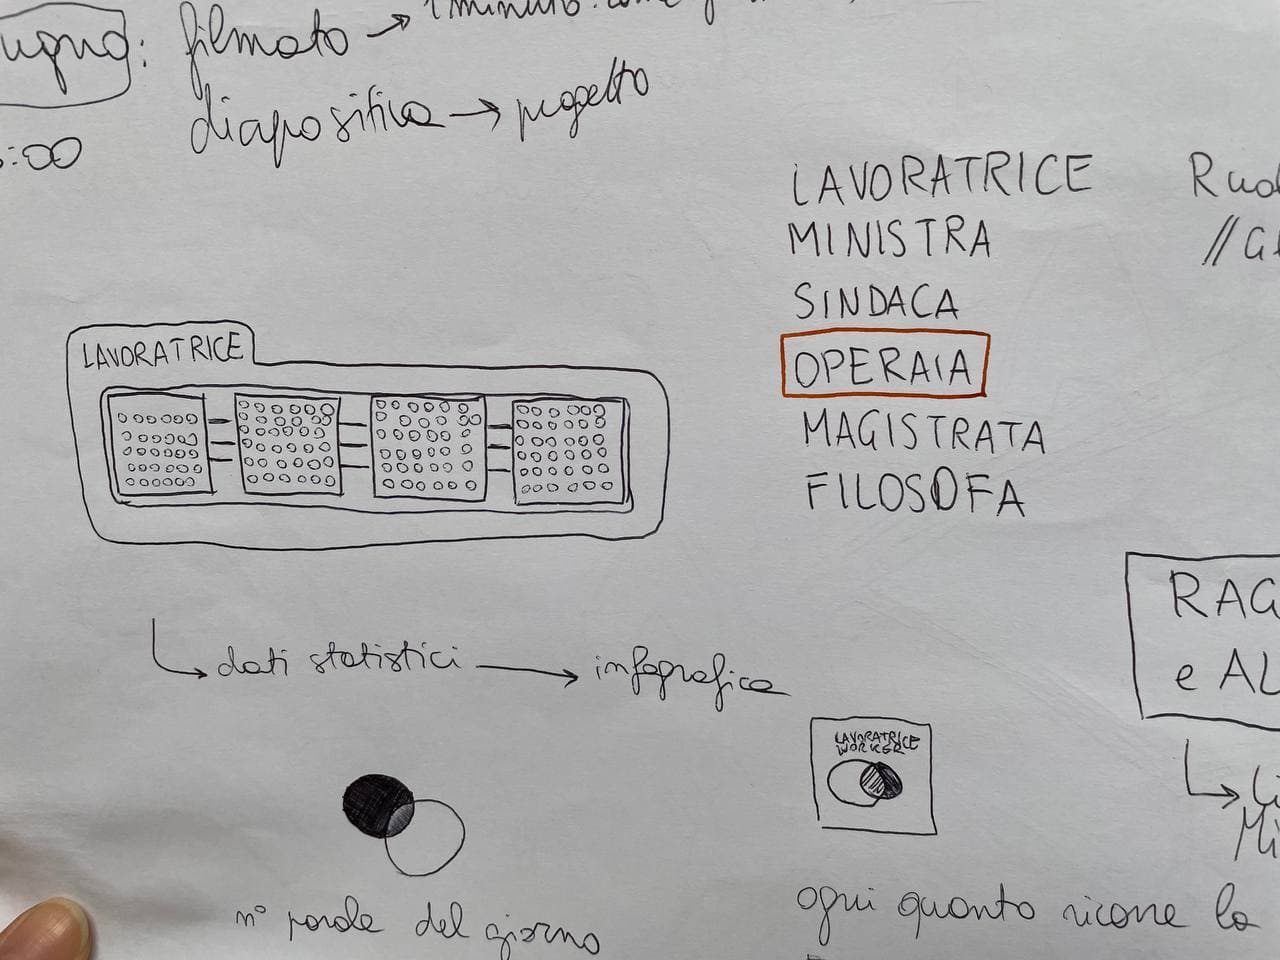 filmato → 1 minuto:
diapositiva → progetto
:00
LAVORATRICE
MINISTRA
SINDACA
OPERAIA
MAGISTRATA
FILOSOFA
//
LAVORATRICE
dati statistici → infografica
RAG
e AL
LAVORATRICE
WORKER
n° parole del giorno
ogni quanto ricorre la